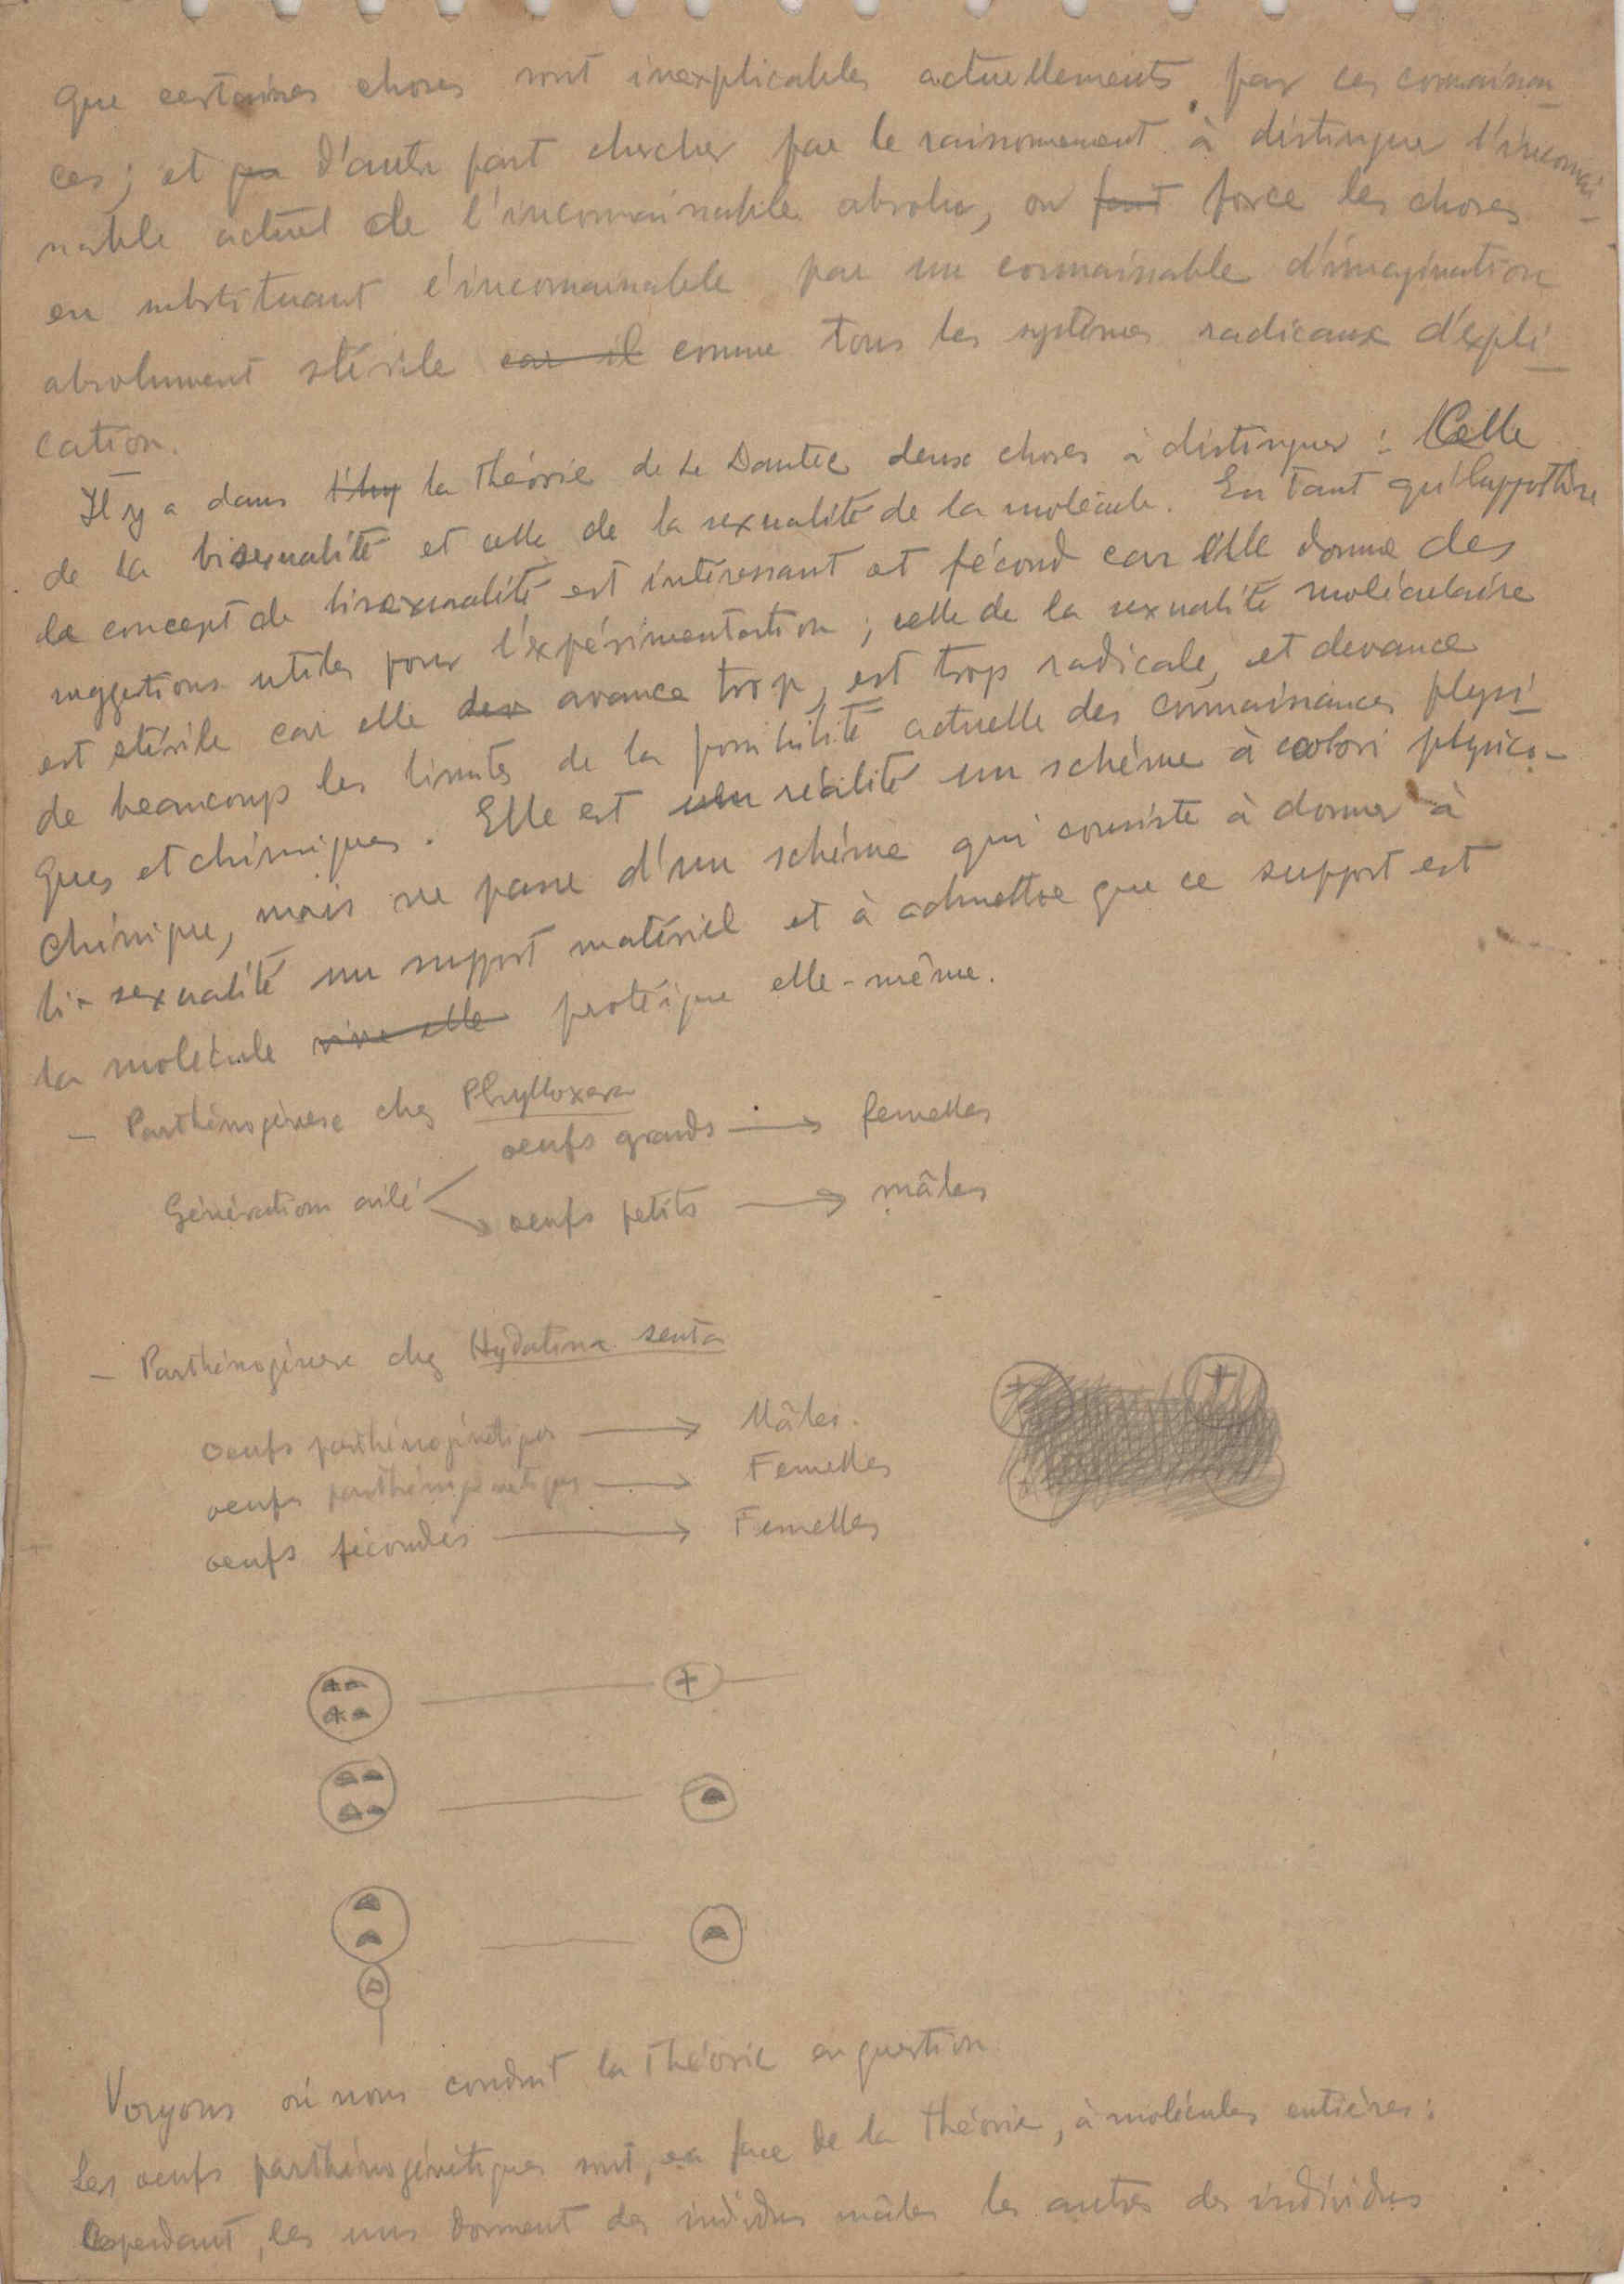 que certaines choses sont inexplicables actuellements par ces connaissan
ces; et pa d'autre part chercher par le raisonnement à distinguer l'inconnais
sable actuel de l'inconnaissable absolu, on fait force les choses
en substituant l'inconnaissable par un connaissable d'imagination
absolument stérile car il comme tous les systèmes radicaux d'expli
cation.
Il y a dans l'hy la théorie de Le Dantec deux choses à distinguer : Celle
de la bisexualité et celle de la sexualité de la molécule. En tant qu'hypothèse
le concept de bisexualité est intéressant et fécond car elle donne des
suggestions utiles pour l'expérimentation ; celle de la sexualité moléculaire
est stérile car elle dev avance trop, est trop radicale, et devance
de beaucoup les limites de la possibilité actuelle des connaissances physi
ques et chimiques. Elle est en réalité un schème à colori physico-
chimique, mais ne passe d'un schéme qui consiste à donner à
bi-sexualité un support matériel et à admettre que ce support est
la molécule vive elle protéique elle-même.
- Parthénogénèse chez Phylloxera
oeufs grands → femelles
Génération ailé
oeufs petits → mâles
- Parthénogénèse chez Hydatina senta
oeufs parthénogénétiques → Mâles.
oeufs parthénogénétiques → Femelles
oeufs fécondés → Femelles
Voyons où nous conduit la théorie en question.
Les oeufs parthénogénétiques sont, en face de la théorie, à molécules entières :
Cependant, les uns donnent des individus mâles les autres des individus